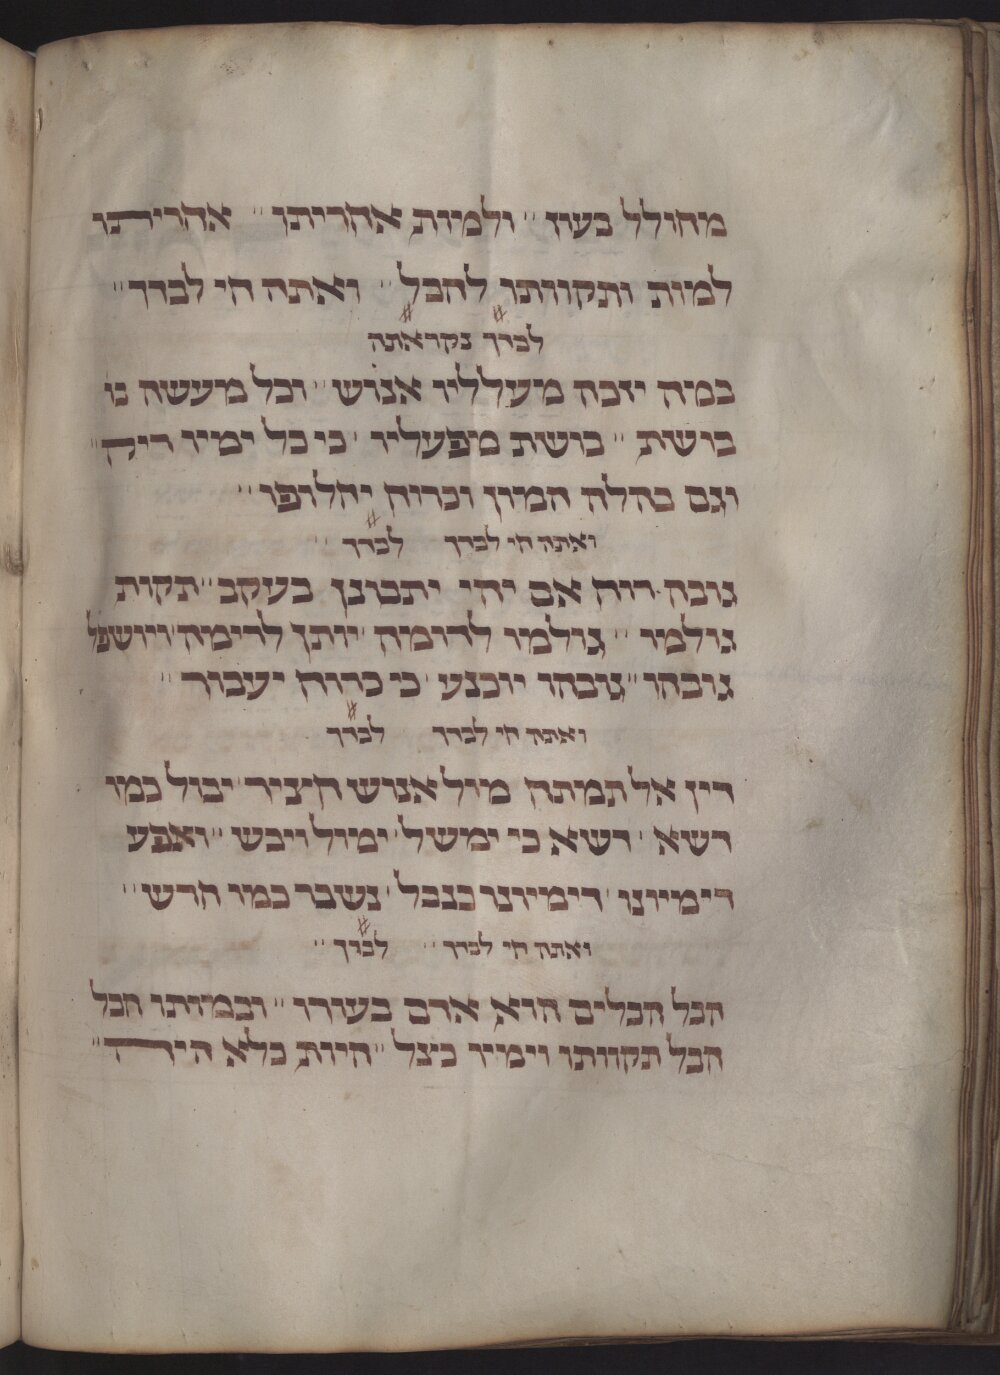 מחולל בעון ״ ולמות אחריתו ״ אחריתו
למות ותקוותו להבל ״ ואתה חי לברך ״
לברך נקראתה
במה יזכה מעלליו אנוש ״ וכל מעשה נו
בושת ״ בושת מפעליו ׳ כי כל ימיו ריק ״
וגם בהלה המון וכרוח יחלופו ״
ואתה חי לברך לברך
גובה רוח אם יהי יתבונן בעקב ״ תקות
גולמו ״ גולמו לדומה ׳ יותן לרימה ׳ ויושפל
גובהו ״ גובהו יוכנע ׳ כי כרוח יעבור ״
ואתה חי לברך לברך
דין אל תמתח מול אנוש חציר ׳ יבול כמו
דשא ׳ דשא כי ימשל ׳ ימול ויבש ״ ואפע
דימיונו ׳ דימיונו כנבל ׳ נשבר כמו חרש ״
ואתה חי לברך ״ לברך ״
הבל הבלים הוא אדם בעודו ״ ובמותו הבל
הבל תקוותו וימיו כצל ״ היות כלא היה ״